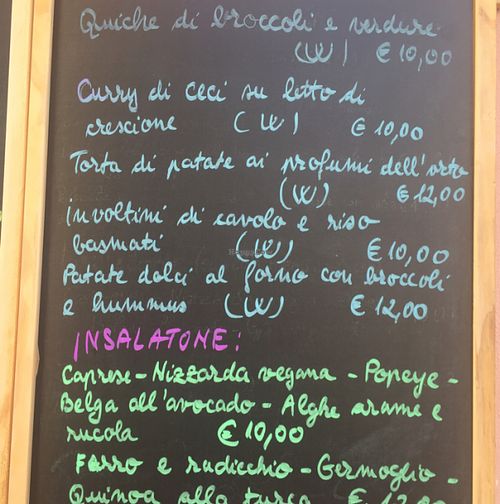 Quiche di broccoli e verdure
(W) € 10,00
Curry di ceci su letto di
crescione (W) € 10,00
Torta di patate ai profumi dell'orto
(W) € 12,00
Involtini di cavolo e riso
basmati (W) € 10,00
Patate dolci al forno con broccoli
e hummus (W) € 12,00
INSALATONE:
Caprese - Nizzarda vegana - Popeye -
Belga all'avocado - Alghe arame e
rucola € 10,00
Farro e radicchio - Germoglio -
Quinoa alla turca €